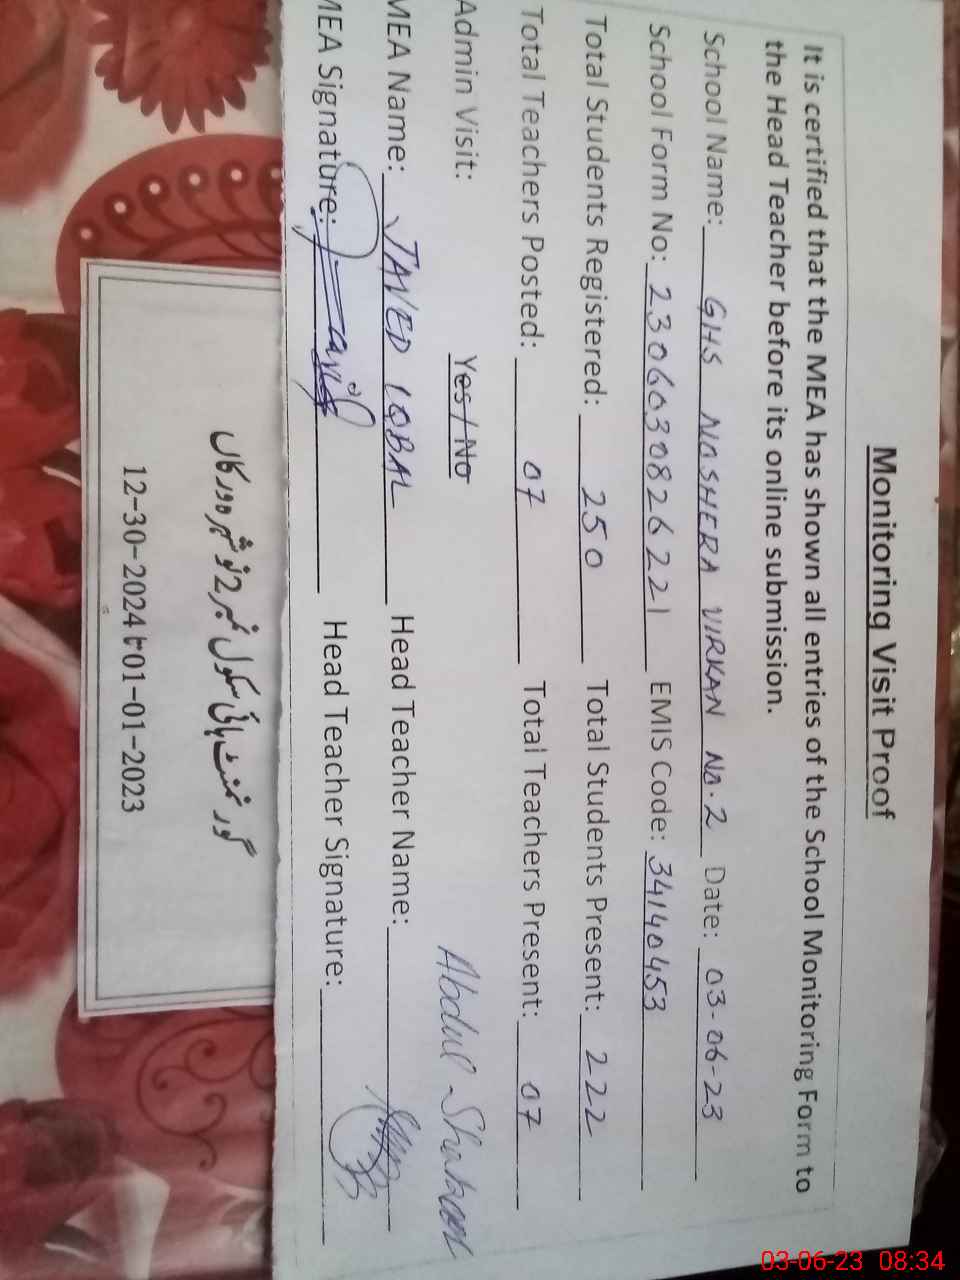 Monitoring Visit Proof
It is certified that the MEA has shown all entries of the School Monitoring Form to
the Head Teacher before its online submission.
School Name: GHS NOSHERA VIRKAN NO.2 Date: 03-06-23
School Form No: 2306030826221 EMIS Code: 34140453
Total Students Registered: 250 Total Students Present: 222
Total Teachers Posted: 07 Total Teachers Present: 07
Admin Visit: Yes / No
MEA Name: JAVED IQBAL Head Teacher Name: Abdul
MEA Signature: Head Teacher Signature:
گورنمنٹ ہائی سکول نمبر 2 نوشہرہ ورکاں
12-30-2024 تا 01-01-2023
03-06-23 08:34